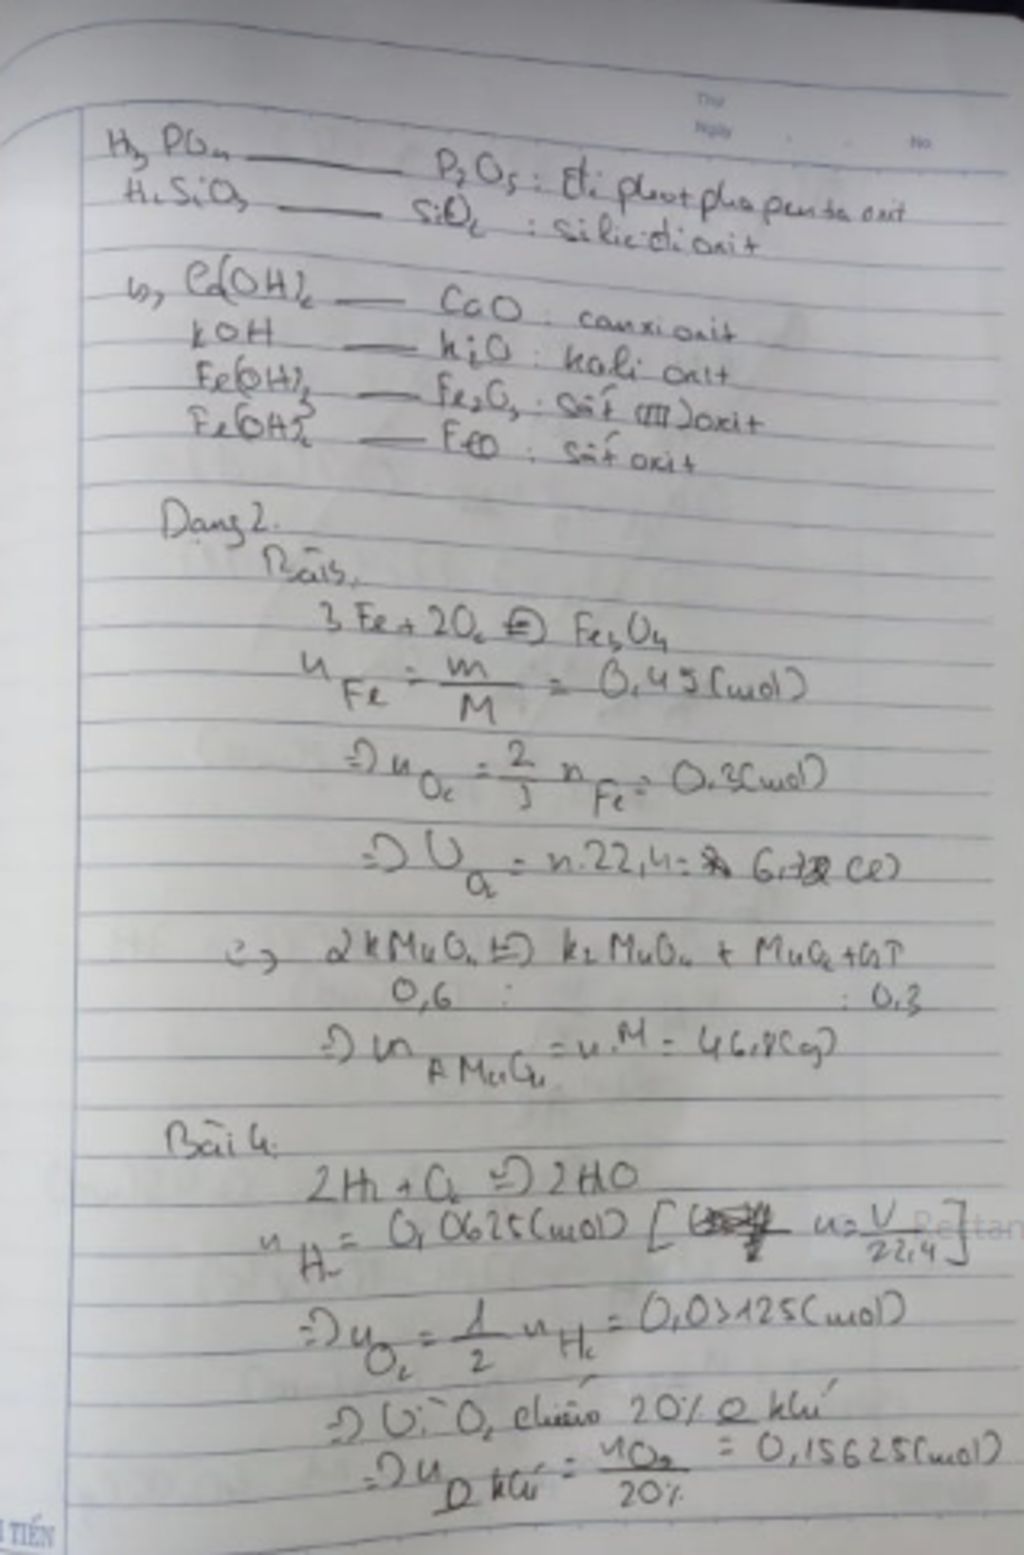 Thứ
Ngày No
H₃PO₄ — P₂O₅ : điphotphopentaoxit
H₂SiO₃ — SiO₂ : silicđioxit
b, Ca(OH)₂ — CaO : canxi oxit
KOH — K₂O : kali oxit
Fe(OH)₃ — Fe₂O₃ : sắt (III) oxit
Fe(OH)₂ — FeO : sắt oxit
Dạng 2.
Bài 3,
3Fe + 2O₂ => Fe₃O₄
n Fe = m/M = 0,45 (mol)
=> n O₂ = 2/3 n Fe = 0,3 (mol)
=> V O₂ = n.22,4 = 6,72 (l)
c, 2KMnO₄ => K₂MnO₄ + MnO₂ + O₂↑
0,6 : : 0,3
=> m KMnO₄ = n.M = 46,8 (g)
Bài 4.
2H₂ + O₂ => 2H₂O
n H₂ = 0,0625 (mol) [ n = V/22,4 ]
=> n O₂ = 1/2 n H₂ = 0,03125 (mol)
=> Vì O₂ chiếm 20% O khí
=> n O khí = nO₂/20% = 0,15625 (mol)
TIẾN